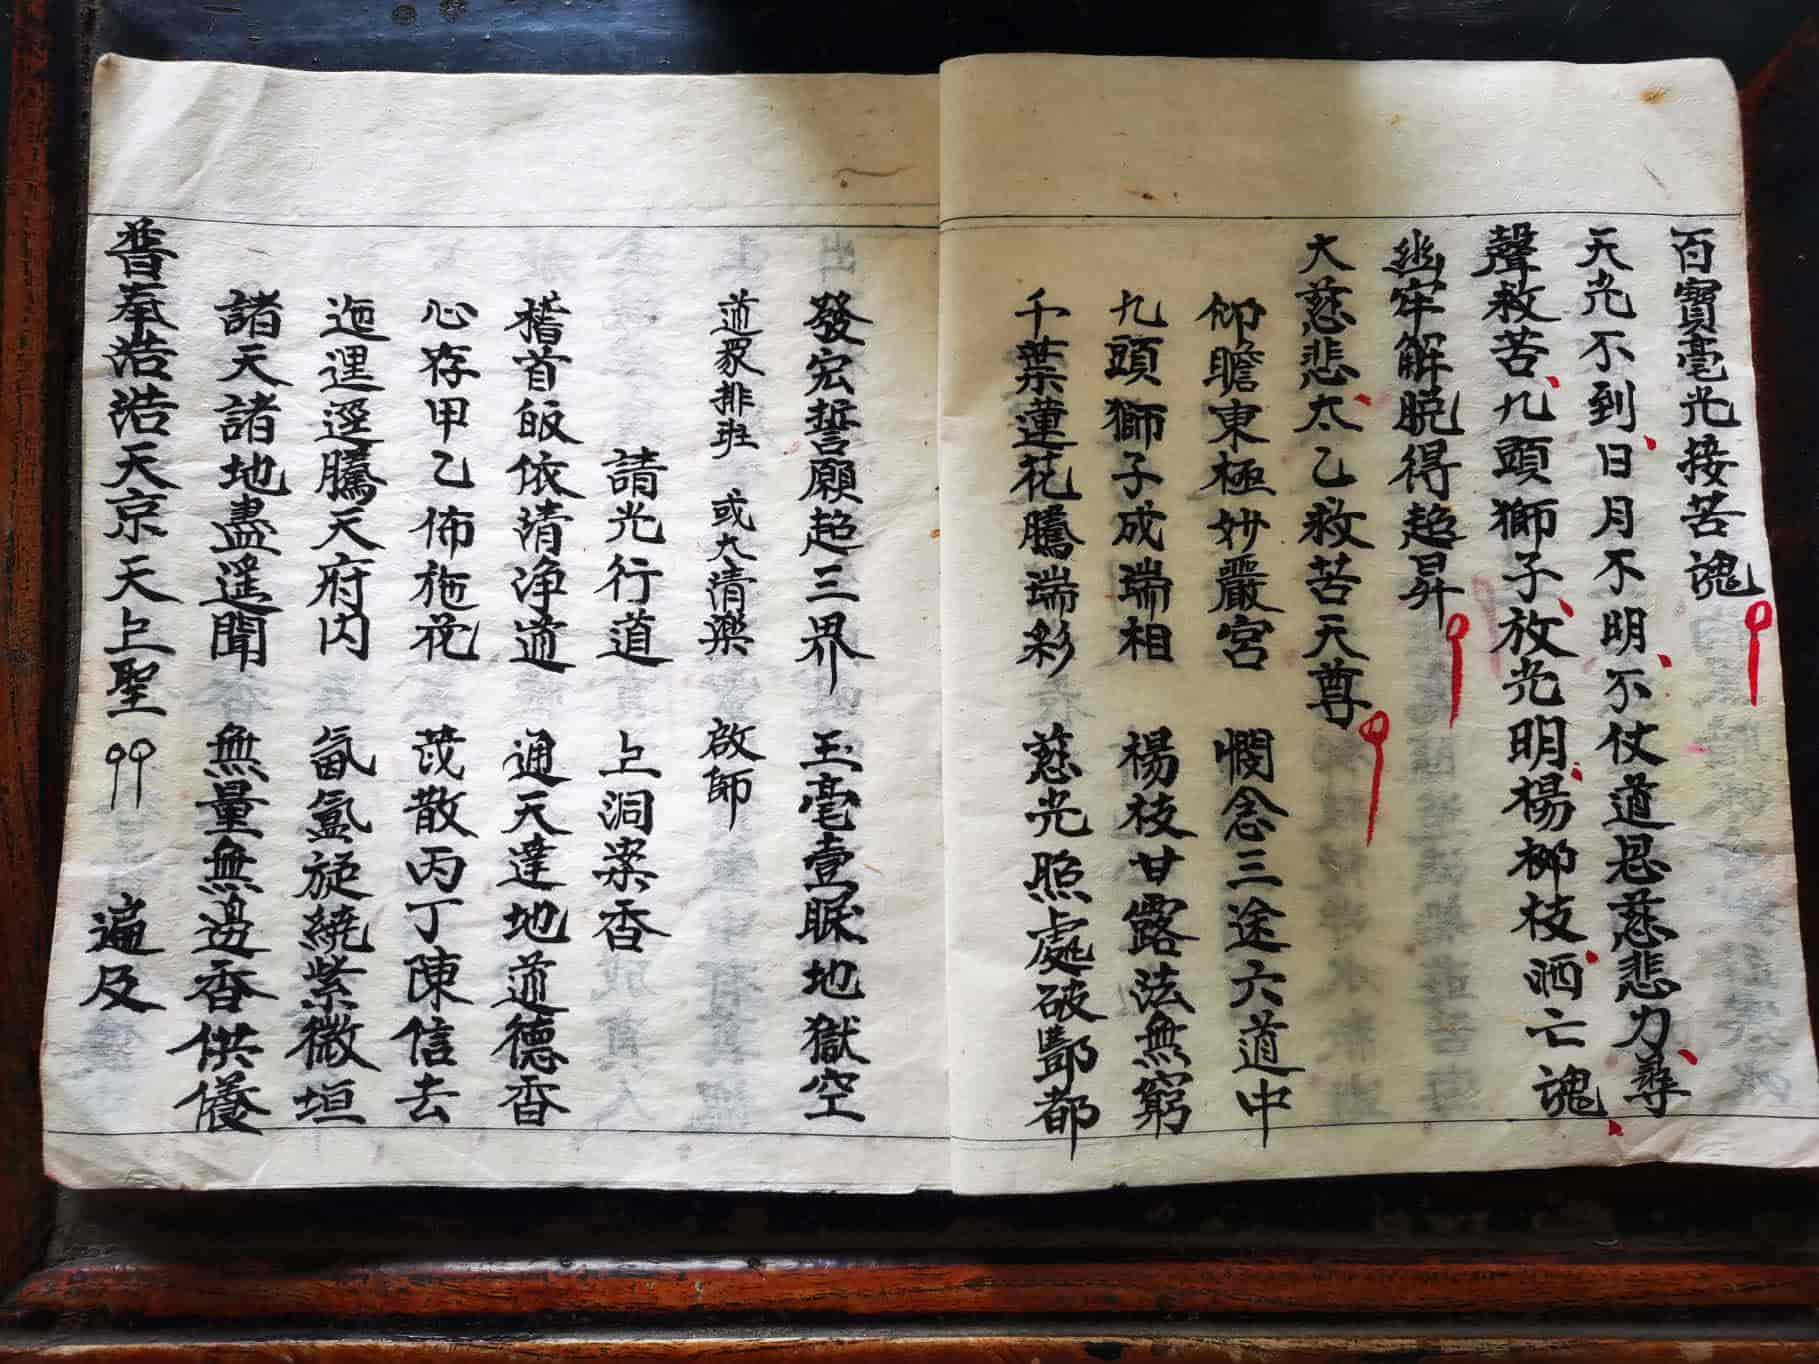 百寶毫光接苦魂
天光不到日月不明不仗道恩慈悲力尋
聲救苦九頭獅子放光明楊柳枝洒亡魂
幽牢解脫得超昇
大慈悲太乙救苦天尊
仰瞻東極妙嚴宮 憫念三途六道中
九頭獅子成瑞相 楊枝甘露法無窮
千葉蓮花騰瑞彩 慈光照處破酆都
發宏誓願超三界 玉毫壹照地獄空
道眾排班 或大清樂 啟師
請光行道 上洞案香
稽首皈依清淨道 通天達地道德香
心存甲乙佈施花 茂散丙丁陳信去
迤逦逕騰天府內 氤氳旋繞紫微垣
諸天諸地盡遥聞 無量無邊香供養
普奉浩浩天京天上聖 遍及